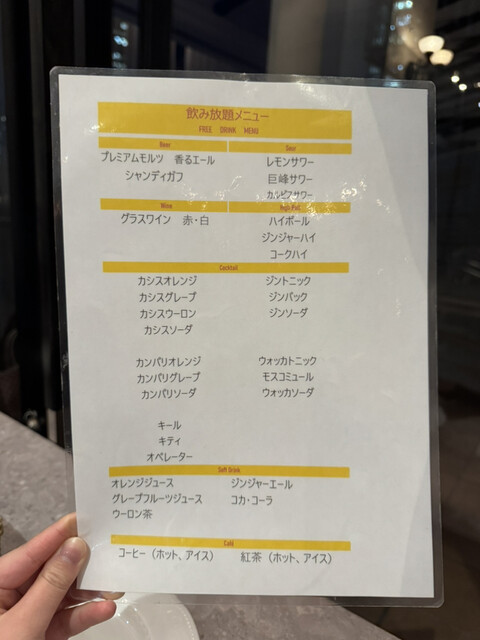 飲み放題メニュー
FREE DRINK MENU
Beer
プレミアムモルツ 香るエール
シャンディガフ
Sour
レモンサワー
巨峰サワー
カルピスサワー
Wine
グラスワイン 赤・白
High Ball
ハイボール
ジンジャーハイ
コークハイ
Cocktail
カシスオレンジ
カシスグレープ
カシスウーロン
カシスソーダ
ジントニック
ジンバック
ジンソーダ
カンパリオレンジ
カンパリグレープ
カンパリソーダ
ウォッカトニック
モスコミュール
ウォッカソーダ
キール
キティ
オペレーター
Soft Drink
オレンジジュース
グレープフルーツジュース
ウーロン茶
ジンジャーエール
コカ・コーラ
Café
コーヒー（ホット、アイス）
紅茶（ホット、アイス）